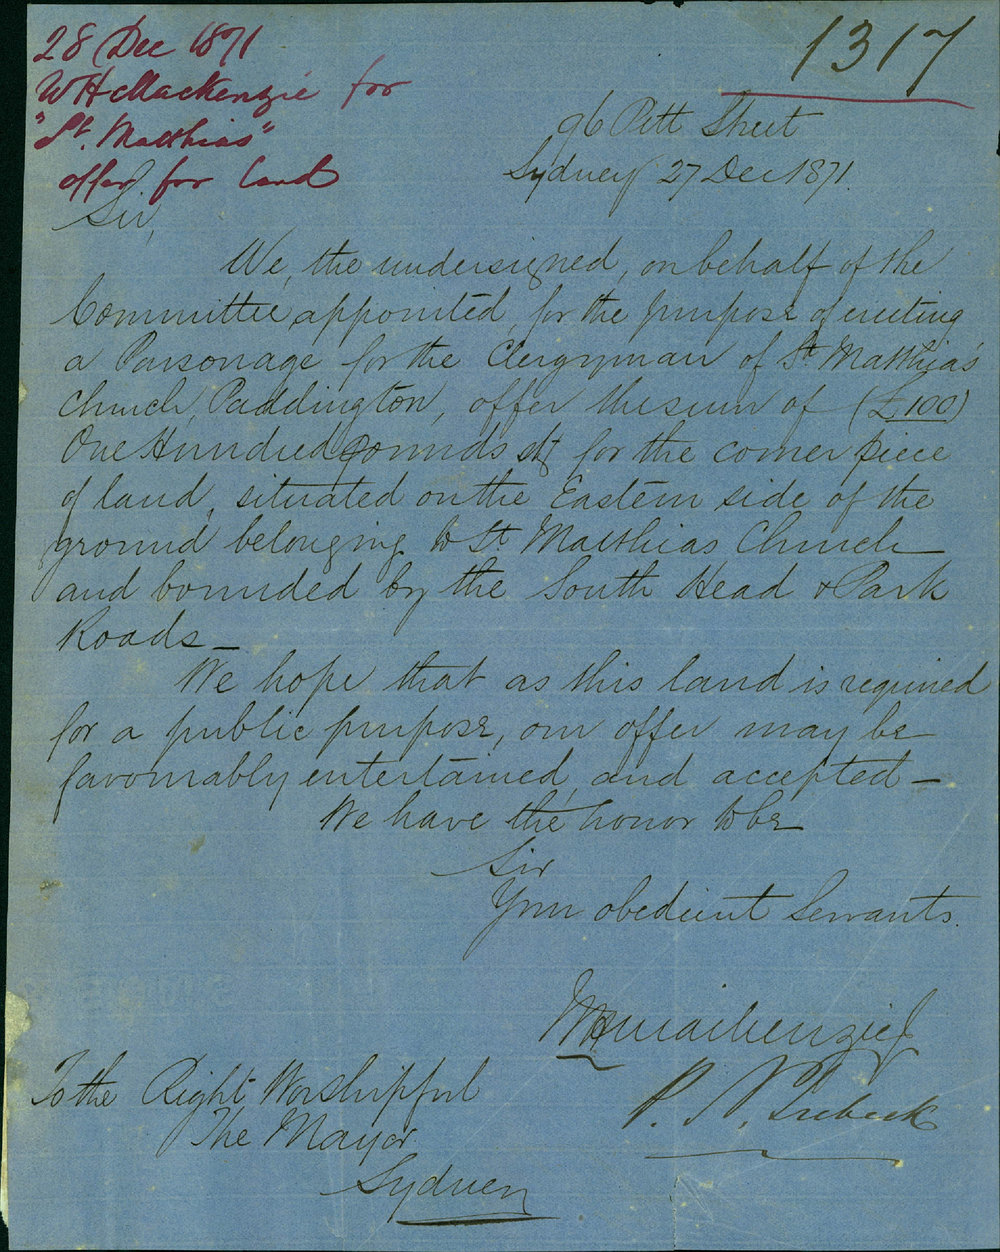 28 Dec 1871
WH Mackenzie for
"St. Matthias"
offer for land
1317
96 Pitt Street
Sydney 27 Dec 1871.
Sir,
We, the undersigned, on behalf of the
Committee, appointed, for the purpose of erecting
a Parsonage for the Clergyman of St Matthias'
Church, Paddington, offer the sum of (£100)
One Hundred pounds stg for the corner piece
of land, situated on the Eastern side of the
ground belonging to St. Matthias Church
and bounded by the South Head & Park
Roads—
We hope that as this land is required
for a public purpose, our offer may be
favourably entertained, and accepted—
We have the honor to be
Sir
Your obedient Servants.
WH Mackenzie
P.
To the Right Worshipful
The Mayor
Sydney